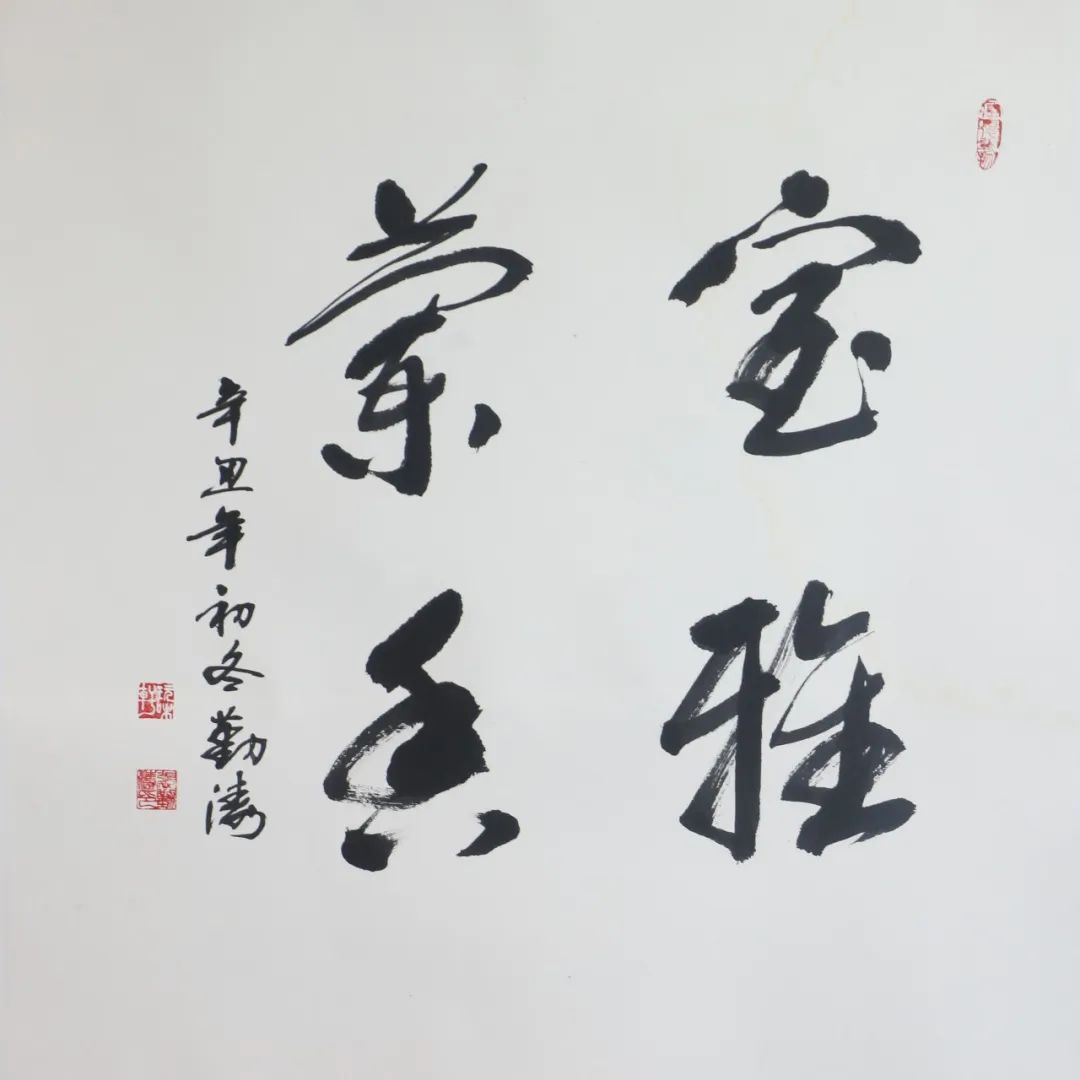 室雅
蘭香
辛丑年初冬勤濤